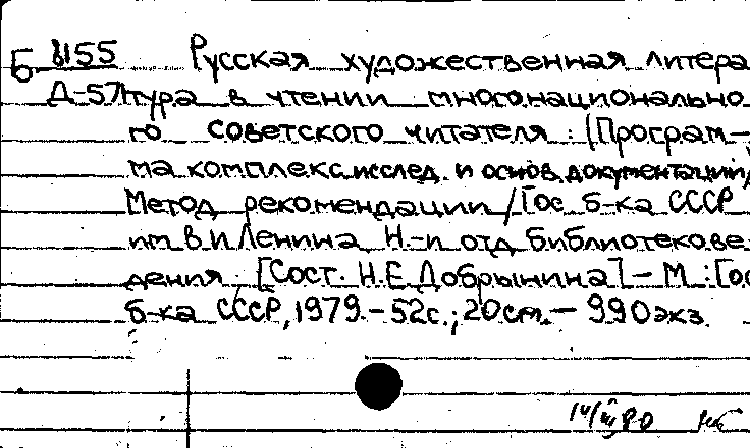 Б 8155 Русская художественная литера
Д-571 тура в чтении многонационально
го советского читателя : (Програм-
ма комплекс.исслед. и основ.документации)
Метод рекомендации / Гос б-ка СССР
им В И Ленина, Н.-и отд библиотекове
дения ; [Сост. Н.Е.Добрынина] - М : Гос
б-ка СССР, 1979. - 52с.; 20см. - 990экз.
14/III 80